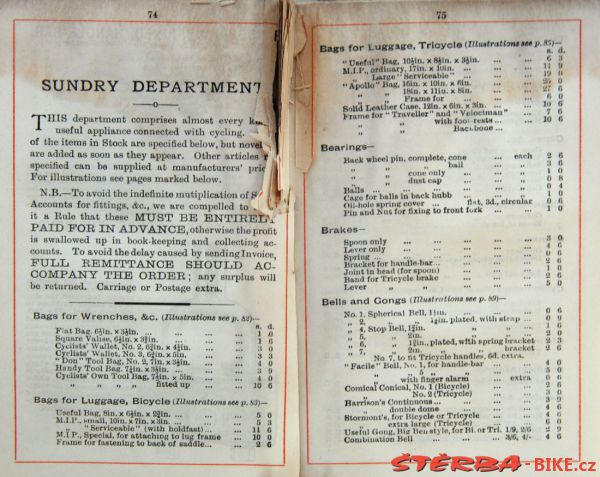 74
SUNDRY DEPARTMENT
THIS department comprises almost every
useful appliance connected with cycling.
of the items in Stock are specified below, but
are added as soon as they appear. Other articles
specified can be supplied at manufacturers'
For Illustrations see pages marked below.
N.B.—To avoid the indefinite mutiplication of
Accounts for fittings, &c., we are compelled to
it a Rule that these MUST BE ENTIRELY
PAID FOR IN ADVANCE, otherwise the profit
is swallowed up in book-keeping and collecting ac-
counts. To avoid the delay caused by sending Invoice,
FULL REMITTANCE SHOULD AC-
COMPANY THE ORDER; any surplus will
be returned. Carriage or Postage extra.
Bags for Wrenches, &c. (Illustrations see p. 82)—
s. d.
Flat Bag, 6½in. x 3½in. ... 1 0
Square Valise, 6½in. x 3½in. ... 1 6
Cyclists' Wallet, No. 2, 6¾in. x 4½in. ...
Cyclists' Wallet, No. 3, 6¾in. x 5in. ... 3 3
"Don" Tool Bag, No. 2, 7in. x 3½in. ...
Handy Tool Bag, 7½in. x 3½in. ...
Cyclists' Own Tool Bag, 7½in. x 5in. ... 4 0
" " " " fitted up ... 10 6
Bags for Luggage, Bicycle (Illustrations see p. 83)—
Useful Bag, 8in. x 6½in. x 2¾in. ... 5 0
M.I.P., small, 10in. x 7in. x 3in. ... 5 3
" "Serviceable" (with holdfast) ... 11 6
M.I.P., Special, for attaching to lug frame ... 10 0
Frame for fastening to back of saddle ... 2 6
75
Bags for Luggage, Tricycle (Illustrations see p. 85)—
s. d.
"Useful" Bag, 10½in. x 8½in. x 3½in. ... 6 3
M.I.P., ordinary, 17in. x 10in. ... 11 9
" Large "Serviceable" ... 19 0
"Apollo" Bag, 16in. x 10in. x 6in. ... 25 0
" " 18in. x 11in. x 8in. ... 27 6
" " Frame for ... 6 0
Solid Leather Case, 12in. x 6in. x 3in. ... 10 6
Frame for "Traveller" and "Velociman" ... 7 6
" " with foot-rests ... 10 6
" " Backbone ...
Bearings—
Back wheel pin, complete, cone ... each 2 6
" " " ball ... 3 6
" " cone only ... 1 0
" " dust cap ... 0 8
Balls ... 0 4
Cage for balls in back hubb ... 1 0
Oil-hole spring cover ... flat, 3d., circular 0 6
Pin and Nut for fixing to front fork ... 1 0
Brakes—
Spoon only ... 3 0
Lever only ... 4 6
Spring ... 0 6
Bracket for handle-bar ... 2 6
Joint in head (for spoon) ... 1 0
Band for Tricycle brake ... 2 6
Lever " " ... 5 0
Bells and Gongs (Illustrations see p. 89)—
No. 1, Spherical Bell, 1½in. ... 0 6
" 2, " " 1¾in., plated, with strap ... 0 9
" 4, Stop Bell, 1¾in. ... 1 6
" 5, " 2in. ...
" 6, " 1¾in., plated, with spring bracket 2 3
" 7, " 2in. " " bracket 2 6
No. 7, to fit Tricycle handles, 6d. extra.
"Facile" Bell, No. 1, for handle-bar ... 4 0
" " " 5 " ...
" with finger alarm ... extra 0 6
Comical Conical, No. 1 (Bicycle) ... 2 6
" " No. 2 (Tricycle) ... 3 0
Harrison's Continuous ... 3 9
" double dome ... 4 6
Stormont's, for Bicycle or Tricycle ... 4 6
" extra large (Tricycle) ... 6 0
Useful Gong, Big Ben style, for Bi. or Tri. 1/9, 2/6 2 9
Combination Bell ... 3/6, 4/- 4 6
ŠTĚRBA-BIKE.cz